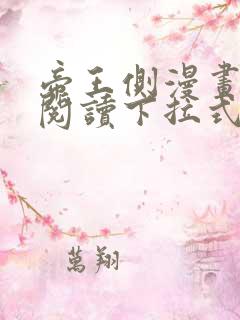 帝王側漫畫
閱讀下拉式
萬翔